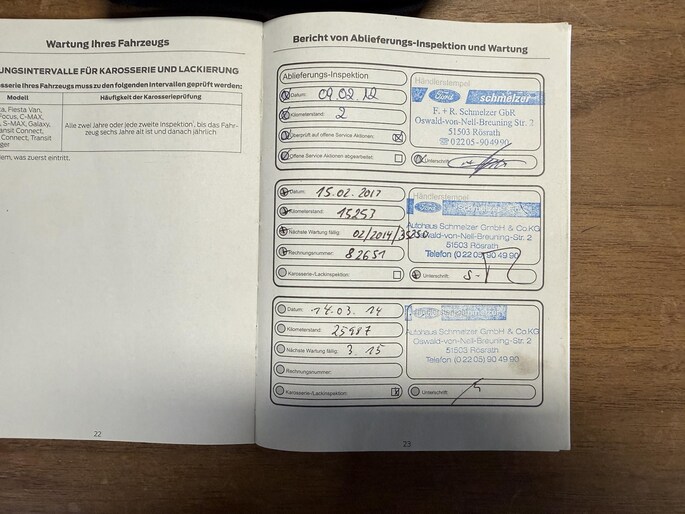 Wartung Ihres Fahrzeugs
UNGSINTERVALLE FÜR KAROSSERIE UND LACKIERUNG
sserie Ihres Fahrzeugs muss zu den folgenden Intervallen geprüft werden:
Modell
Häufigkeit der Karosserieprüfung
a, Fiesta Van,
Focus, C-MAX,
, S-MAX, Galaxy,
ansit Connect,
Connect, Transit
ger
Alle zwei Jahre oder jede zweite Inspektion*, bis das Fahr-
zeug sechs Jahre alt ist und danach jährlich
em, was zuerst eintritt.
22
Bericht von Ablieferungs-Inspektion und Wartung
Ablieferungs-Inspektion
Datum: 09.02.12
Kilometerstand: 2
Überprüft auf offene Service Aktionen:
Offene Service Aktionen abgearbeitet:
Händlerstempel
Ford schmelzer
F. + R. Schmelzer GbR
Oswald-von-Nell-Breuning-Str. 2
51503 Rösrath
☎ 02205-904990
Unterschrift:
Datum: 15.02.2013
Kilometerstand: 15253
Nächste Wartung fällig: 02/2014/35250
Rechnungsnummer: 82651
Karosserie-/Lackinspektion:
Händlerstempel
Ford
Autohaus Schmelzer GmbH & Co.KG
Oswald-von-Nell-Breuning-Str. 2
51503 Rösrath
Telefon (0 22 05) 90 49 90
Unterschrift:
Datum: 14.03.14
Kilometerstand: 25987
Nächste Wartung fällig: 3.15
Rechnungsnummer:
Karosserie-/Lackinspektion:
Autohaus Schmelzer GmbH & Co.KG
Oswald-von-Nell-Breuning-Str. 2
51503 Rösrath
Telefon (0 22 05) 90 49 90
Unterschrift:
23